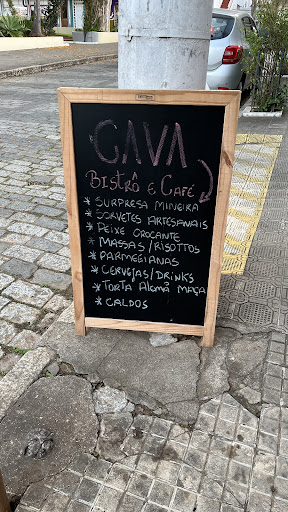 CAVA
BISTRÔ E CAFÉ
* SURPRESA MINEIRA
* SORVETES ARTESANAIS
* PEIXE CROCANTE
* MASSAS/RISOTTOS
* PARMEGIANAS
* CERVEJAS/DRINKS
* TORTA ALEMÃ MAÇÃ
* CALDOS